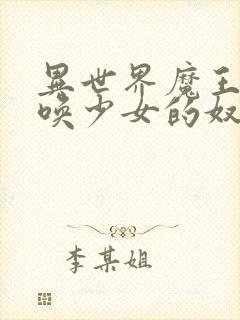 異世界魔王
喚少女的奴
李某姐